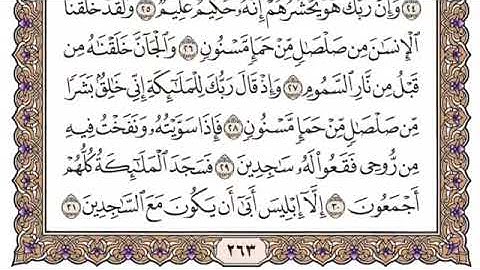 ٢٤ وَإِنَّ رَبَّكَ هُوَ يَحْشُرُهُمْ إِنَّهُۥ حَكِيمٌ عَلِيمٌ ٢٥ وَلَقَدْ خَلَقْنَا
ٱلْإِنسَٰنَ مِن صَلْصَٰلٍ مِّنْ حَمَإٍ مَّسْنُونٍ ٢٦ وَٱلْجَآنَّ خَلَقْنَٰهُ مِن
قَبْلُ مِن نَّارِ ٱلسَّمُومِ ٢٧ وَإِذْ قَالَ رَبُّكَ لِلْمَلَٰٓئِكَةِ إِنِّي خَٰلِقٌۢ بَشَرًا
مِّن صَلْصَٰلٍ مِّنْ حَمَإٍ مَّسْنُونٍ ٢٨ فَإِذَا سَوَّيْتُهُۥ وَنَفَخْتُ فِيهِ
مِن رُّوحِي فَقَعُوا۟ لَهُۥ سَٰجِدِينَ ٢٩ فَسَجَدَ ٱلْمَلَٰٓئِكَةُ كُلُّهُمْ
أَجْمَعُونَ ٣٠ إِلَّآ إِبْلِيسَ أَبَىٰٓ أَن يَكُونَ مَعَ ٱلسَّٰجِدِينَ ٣١
٢٦٣